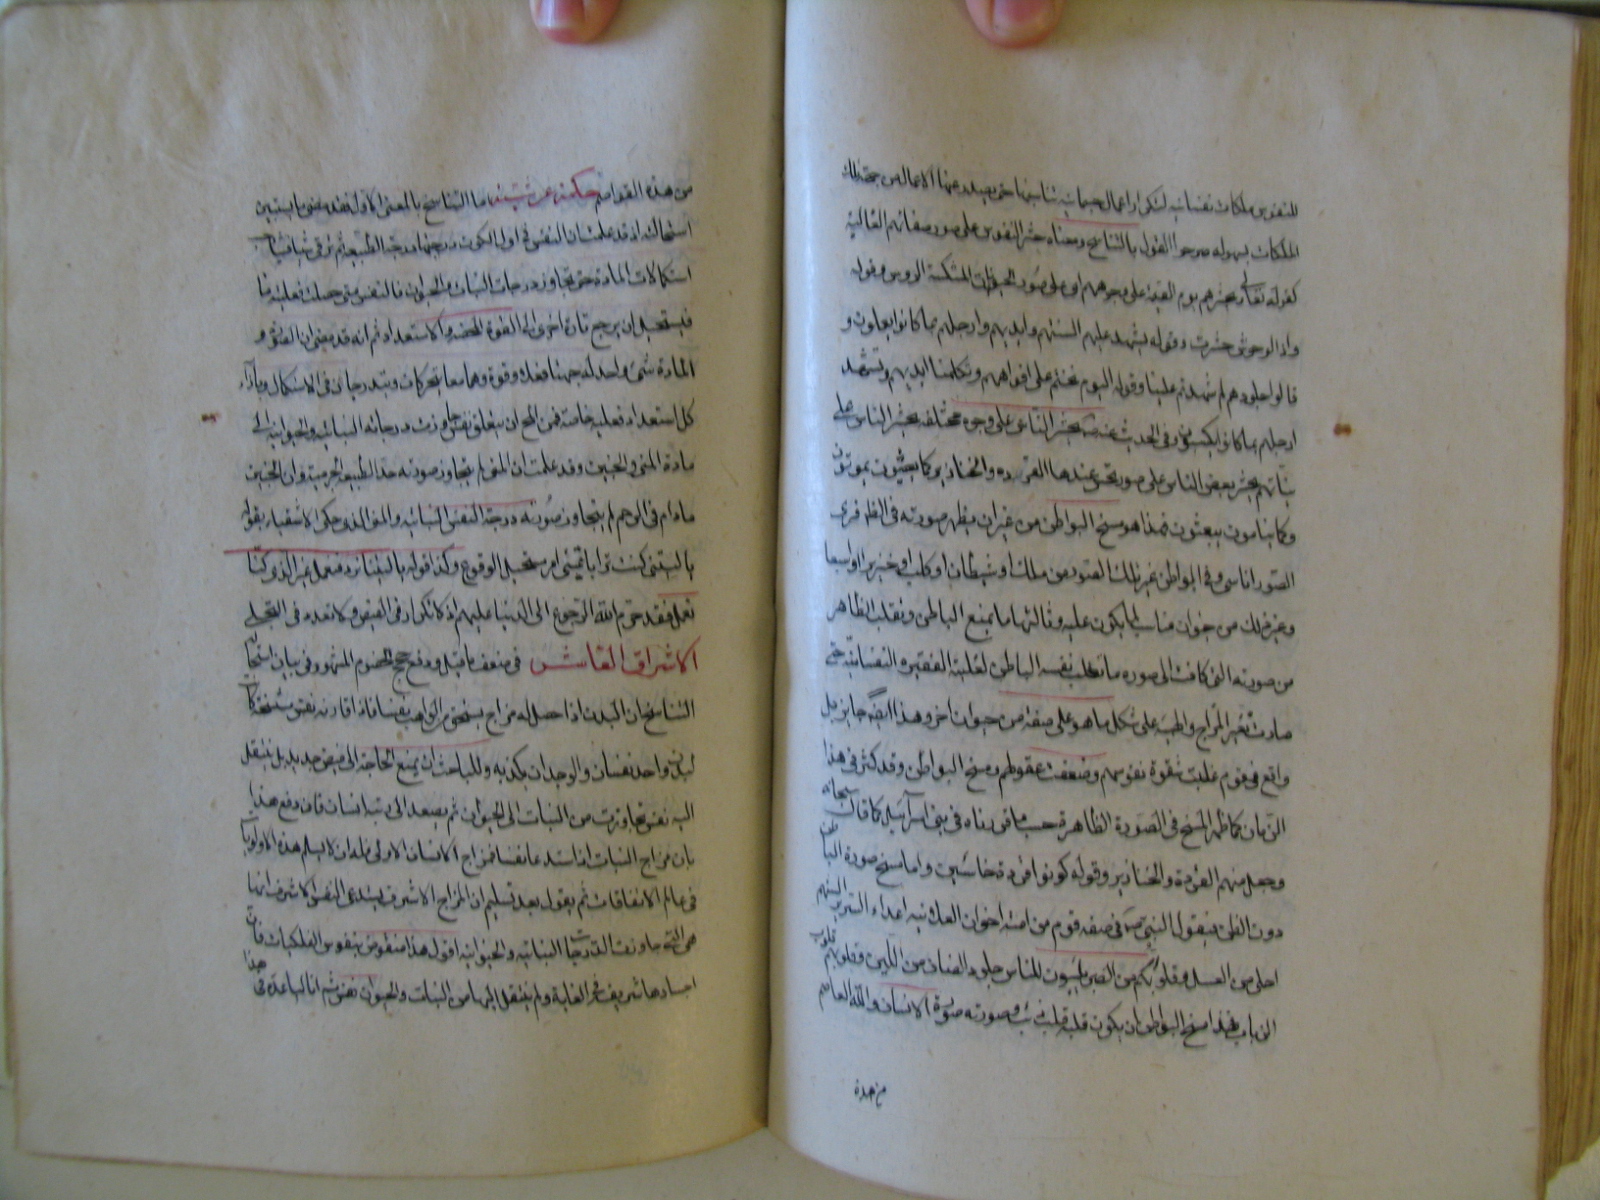 للنفوس ملكات نفسانية لتكرار اعمال جسمانية تناسبها حتى يصدر عنها الاعمال من جهة تلك
الملكات بسهولة صرحوا القول بالتناسخ ومعناه حشر النفوس على صور صفاتهم الغالبة
كقوله تعالى ونحشرهم يوم القيمة على وجوههم اى على صور الحيوانات المنتكسة الرؤس وقوله
واذا الوحوش حشرت وقوله يشهد عليهم السنتهم وايديهم وارجلهم بما كانوا يعملون و
قالوا لجلودهم لم شهدتم علينا وقوله اليوم نختم على افواههم وتكلمنا ايديهم وتشهد
ارجلهم بما كانوا يكسبون وفى الحديث عنه يحشر الناس على وجوه مختلفة يحشر الناس على
نياتهم يحشر بعض الناس على صور تحسن عندها القردة والخنازير وكما يعيشون يموتون
وكما ينامون يبعثون فهذا هو مسخ البواطن من غير ان يظهر صورته فى الظاهر فترى
الصور اناسى وفى البواطن غير تلك الصور من ملك او شيطان او كلب او خنزير او اسد
وغير ذلك من حيوان مناسب لما يكون عليه وثالثها ما يمسخ الباطن وينقلب الظاهر
من صورته التى كانت الى صورة ما ينقلب نفسه الباطن لغلبة القوة النفسانية حتى
صارت تغير المزاج والهيئة على شكل ما هو على صفته من حيوان اخر وهذا ايضا جايز بل
واقع فى قوم غلبت شقوة نفوسهم وضعفت عقولهم ومسخ البواطن وقد كثر فى هذا
الزمان كما ظهر المسخ فى الصورة الظاهرة حسب ما قرأناه فى بنى اسرآئيل كما قال سبحانه
وجعل منهم القردة والخنازير وقوله كونوا قردة خاسئين واما مسخ صورة الباطن
دون الظاهر فبقول النبى فى صفة قوم من امته اخوان العلانية اعداء السريرة السنتهم
احلى من العسل وقلوبهم امر من الصبر يلبسون للناس جلود الضان من اللين وقلوبهم قلوب
الذياب فهذا مسخ البواطن ان يكون قلبه قلب ذئب وصورته صورة الانسان والله العاصم
من هذه
من هذه القواصم حكمة عرشية اما التناسخ بالمعنى الاول فقد مضى ما يستبين
استحالته اذ قد علمت ان النفس فى اول الكون درجتها درجة الطبيعة ثم ترقى شيئا فشيئا حسب
استكمالات المادة حتى تجاوز درجات النبات والحيوان فالنفس متى حصلت لها فعلية ما
فيستحيل ان يرجع تارة اخرى الى القوة المحضة والاستعداد ثم انه قد مضى ان الصورة و
المادة شىء واحد له جهتا فعل وقوة وهما معا يتحركان ويتدرجان فى الاستكمال وبازاء
كل استعداد فعلية خاصة فمن المحال ان يتعلق نفس جاوزت درجاته النباتية والحيوانية الى
مادة المنى والجنين وقد علمت ان المنى لم يتجاوز صورته حد الطبيعة الجرمية وان الجنين
مادام فى الرحم لم يتجاوز صورته درجة النفس النباتية والمنى الذى حكى الاشقياء بقوله
يا ليتنى كنت ترابا تمنى امر مستحيل الوقوع وكذا قوله يا ليتنا نرد فنعمل غير الذى كنا
نعمل فقد حرم الله الرجوع الى الدنيا عليهم اذ لا تكرار فى الفيض ولا تعدد فى التجلى
الاشراق العاشر فى ضعف ما قيل ودفع حجج الخصوم المشهور فى بيان استحالة
التناسخ ان البدن اذا حصل له مزاج يستحق من الواهب نفسا فاذا قارنه نفس مستنسخة كان
لبدن واحد نفسان والوجدان يكذبه وللباحث ان يمنع الحاجة الى فيض جديد بل ينتقل
اليه نفس تجاوزت من النبات الى الحيوان ثم يصعد الى رتبة انسان فان دفع هذا
بان مزاج النبات اذا استدعا نفسا فمزاج الانسان الاولى فله ان لا يسلم هذه الاولوية
فى عالم الاتفاقات ثم يقول بعد تسليم ان المزاج الاشرف يستدعى النفس الاشرف انها
هى التى جاوزت الدرجات النباتية والحيوانية اقول هذا منقوض بنفوس الفلكيات فان
اجسادها شريفة فى الغاية ولم ينتقل اليها من النبات والحيوان نفس ثم ان الباعدة فى هذا